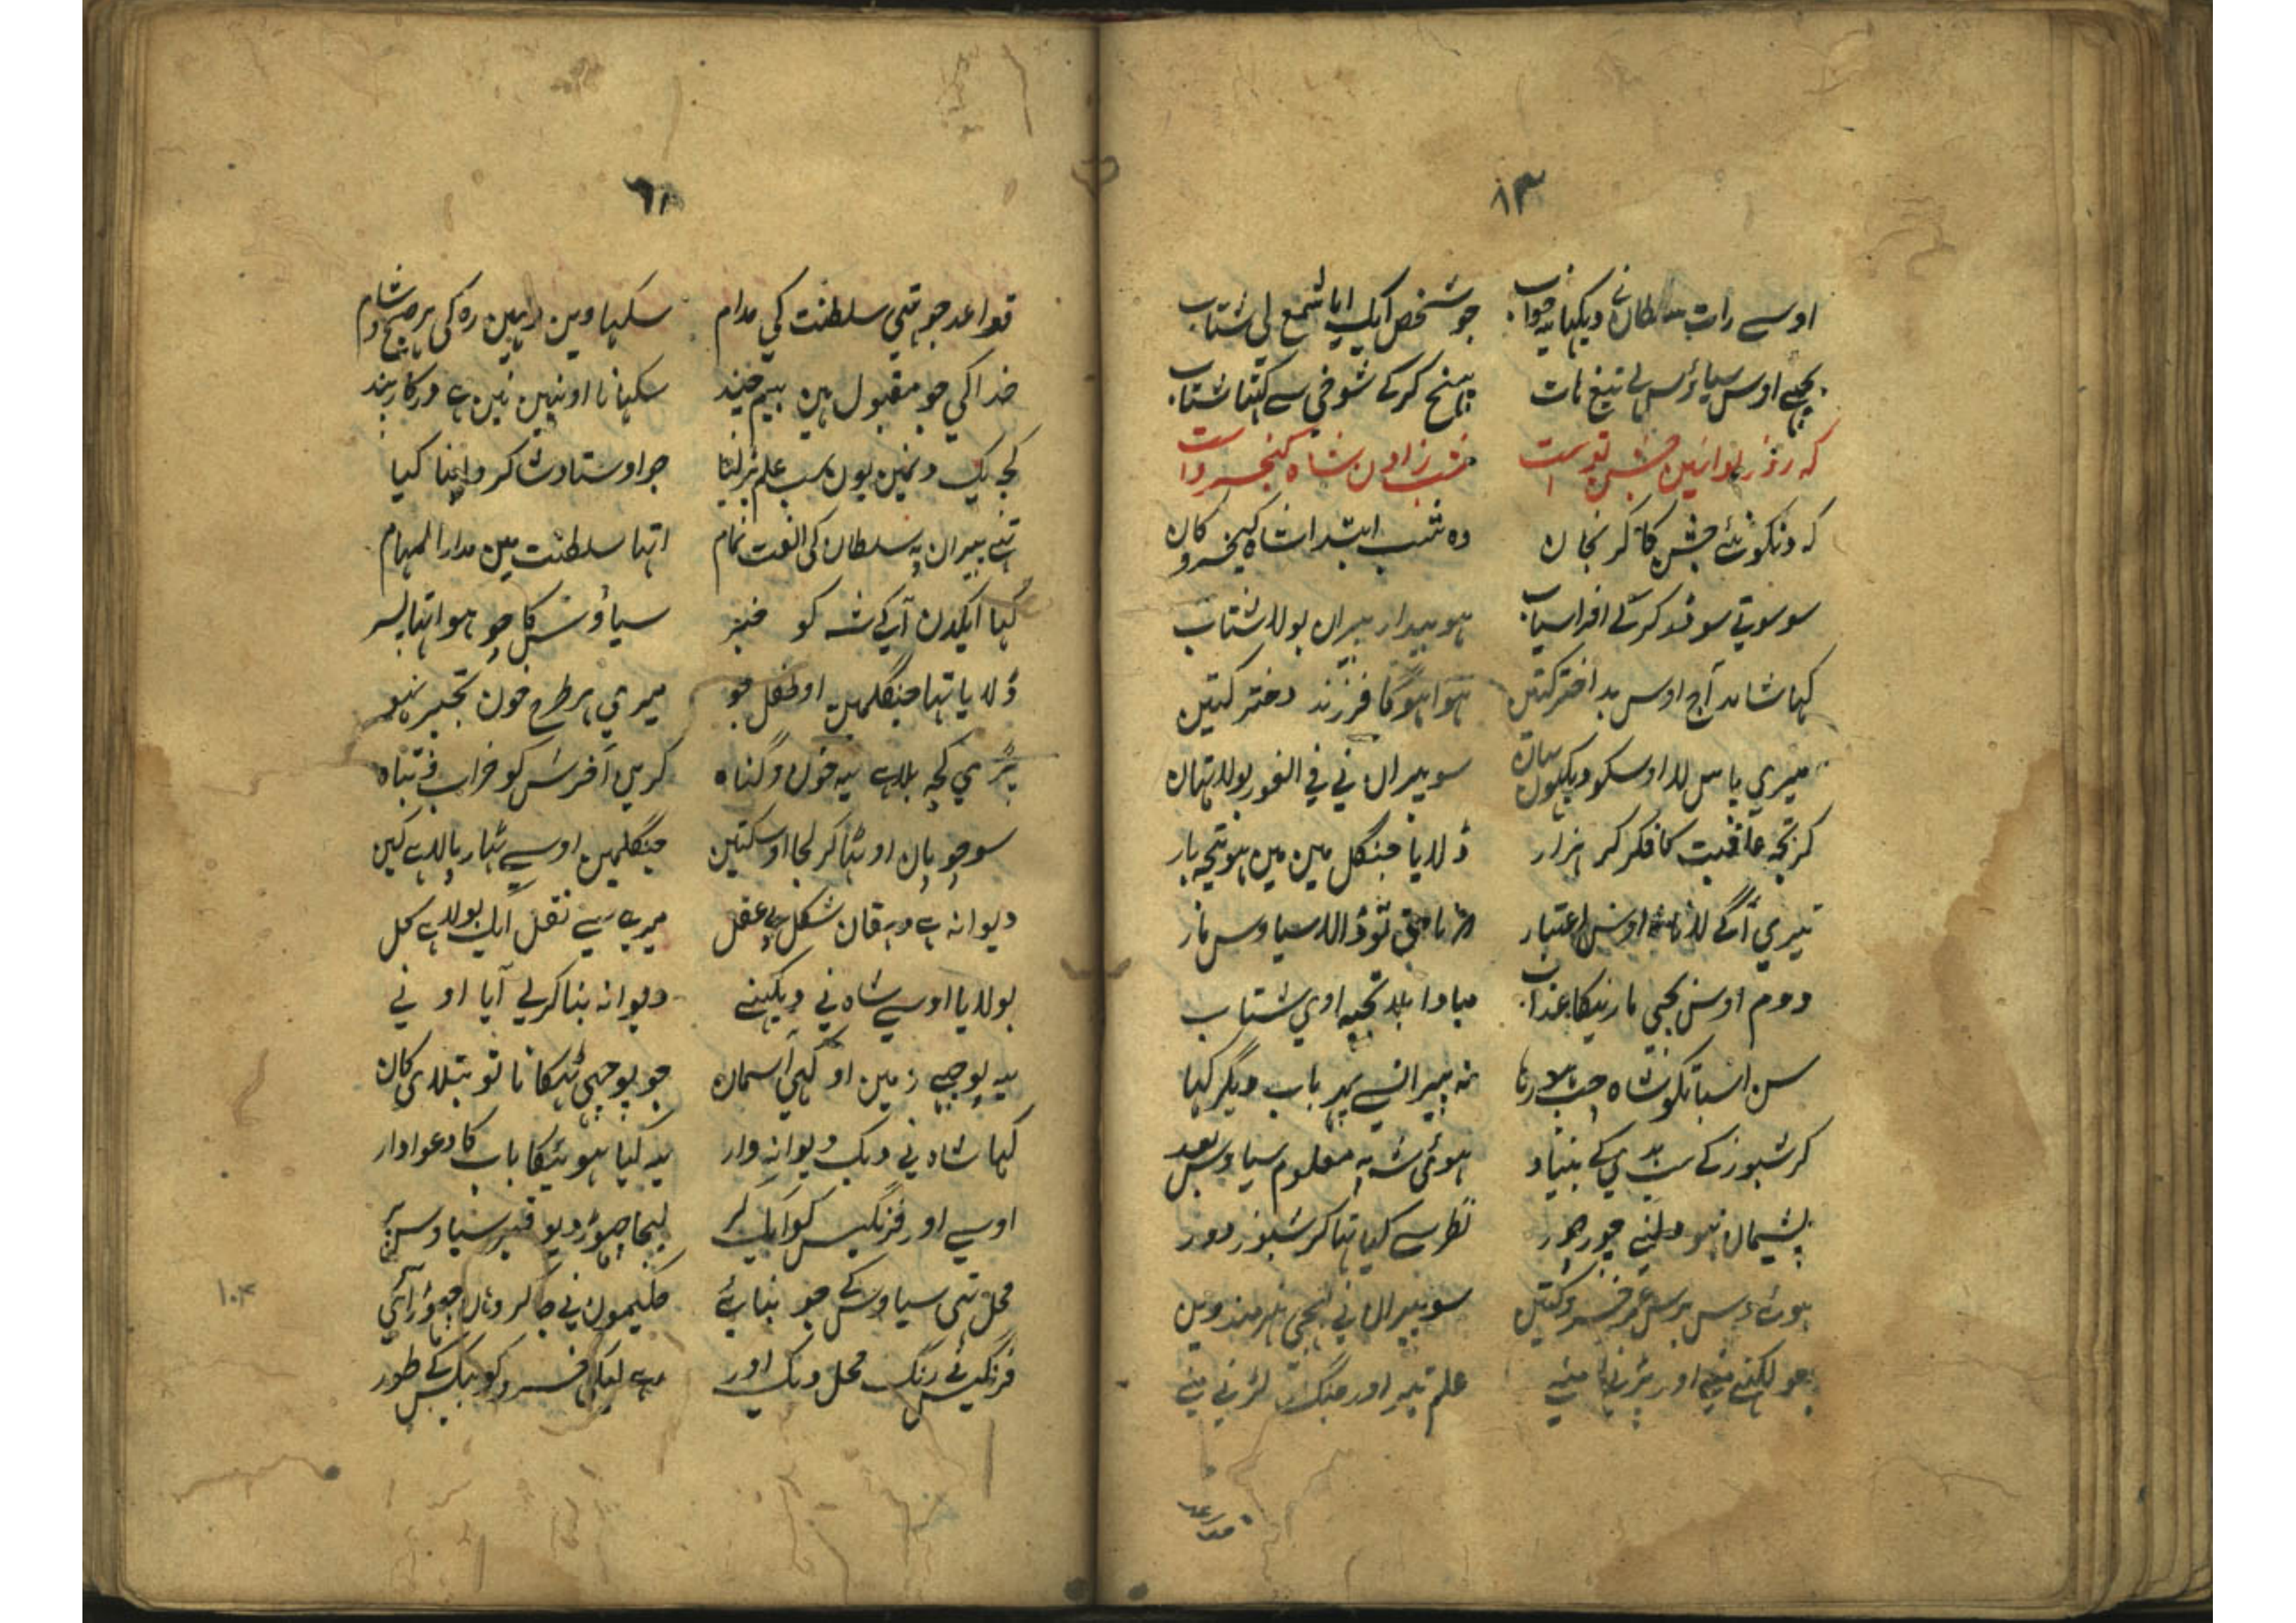 ٨٣
اوسے رات سلطان نے دیکہیا یہ خواب جو شخص ایک ایا شمع لی شتاب
پچھے اوس سیاؤس لے تیغ ہات پہنچ کرکے شوخی سے کہتا شتاب
کہ روز نو ائین جشن نو است شب زادن شاہ کیخسرو است
کہ دنکو نئے جشن کا کر نجان وہ شب ابتدا شاہ کیخسرو کان
سو سوتے سو او کرکے افراسیاب ہو بیدار پیران بولا شتاب
کہا شاید آج اوس بد اختر کتین ہوا ہوگا فرزند دختر کتین
میری پاس لا اوسکو دیکہوں یہان سو پیران نی فی الفور بولا تہان
کر تجہ عاقبت کا فکر کر ہزار ڈلایا جنگل مین مین ہو تیجہ بار
تیری آگے لانا اوس اعتبار نا حق تو ڈالا سیاوس مار
دوم اوس بچی مارنیکا عذاب مبادا بلا تجہہ اوی شتاب
سن اس باتکو شاہ چپ ہو رہا نہ پیران سے پہر باب دیگر کہا
کرشیوز کے بدی کے بنیاد ہوئی شہ پہ معلوم سیاوس بعد
پشیمان ہو دلنے چور چور نظر سے کیا تہا کرشیوز دور
ہوئے دس برس عمر خسرو کتین سو پیران نی ہنرمند وین
جو لکہنے منے اور پڑنے منے علم تیر اور جنگ لڑنی منے
قواعد
٦٨
قواعد جو تہی سلطنت کی مدام سکہیا وین رہین رہ کی ہر صبح و شام
خدا کی جو مقبول ہین بیم چند سکہانا او نہین نین ہے درکار بند
کچہ یک دنمین یون سب علم پڑ لیا جو اوستاد شاکرد اپنا کیا
تہے پیران پہ سلطان کی الفت تمام اتہا سلطنت مین مدار المہام
کہا ایکدن آکے شہ کو خبر سیاؤش کا جو ہوا تہا پسر
ڈلایا تہا جنگلمین او طفل جو میری ہر طرح خون تجہ پر نہو
پڑی کچہ بلا ہے یہ خون و گناہ کرین آخرش کو خراب و تباہ
سو چوپان اوٹہا کر لجا اوسکتین جنگلمین اوسے ٹہار پالا ہے کین
دیوانہ ہے دہقان شکل بے عقل میرے سے نقل ایک بولا ہے کل
بولایا اوسے شاہ نی دیکہنے دیوانہ بنا کر لے آیا او نے
یہ پوچھے زمین او کہی آسمان جو پوچہی ٹہکانا تو بتلادی کان
کہا شاہ نی دیک دیوانہ وار یہ کیا ہوئیکا باپ کا دعوادار
اوسے اور فرنگیس کو ایک کر لیجا چہوڑ دیو قبر سیاوس پر
محل تہی سیاوش کے جو بنائے حکیمون نی جا کر وہان چہوڑ آئی
فرنگیس نے رنگ محل دیک اور رہے لیکے خسرو کو بیکس کے طور
١٠٤